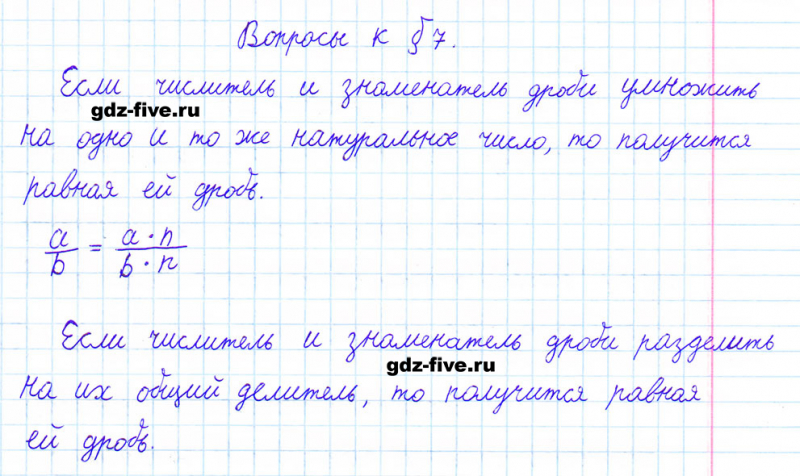 Вопросы к § 7.
Если числитель и знаменатель дроби умножить
gdz-five.ru
на одно и то же натуральное число, то получится
равная ей дробь.
a/b = a·n/b·n
Если числитель и знаменатель дроби разделить
gdz-five.ru
на их общий делитель, то получится равная
ей дробь.